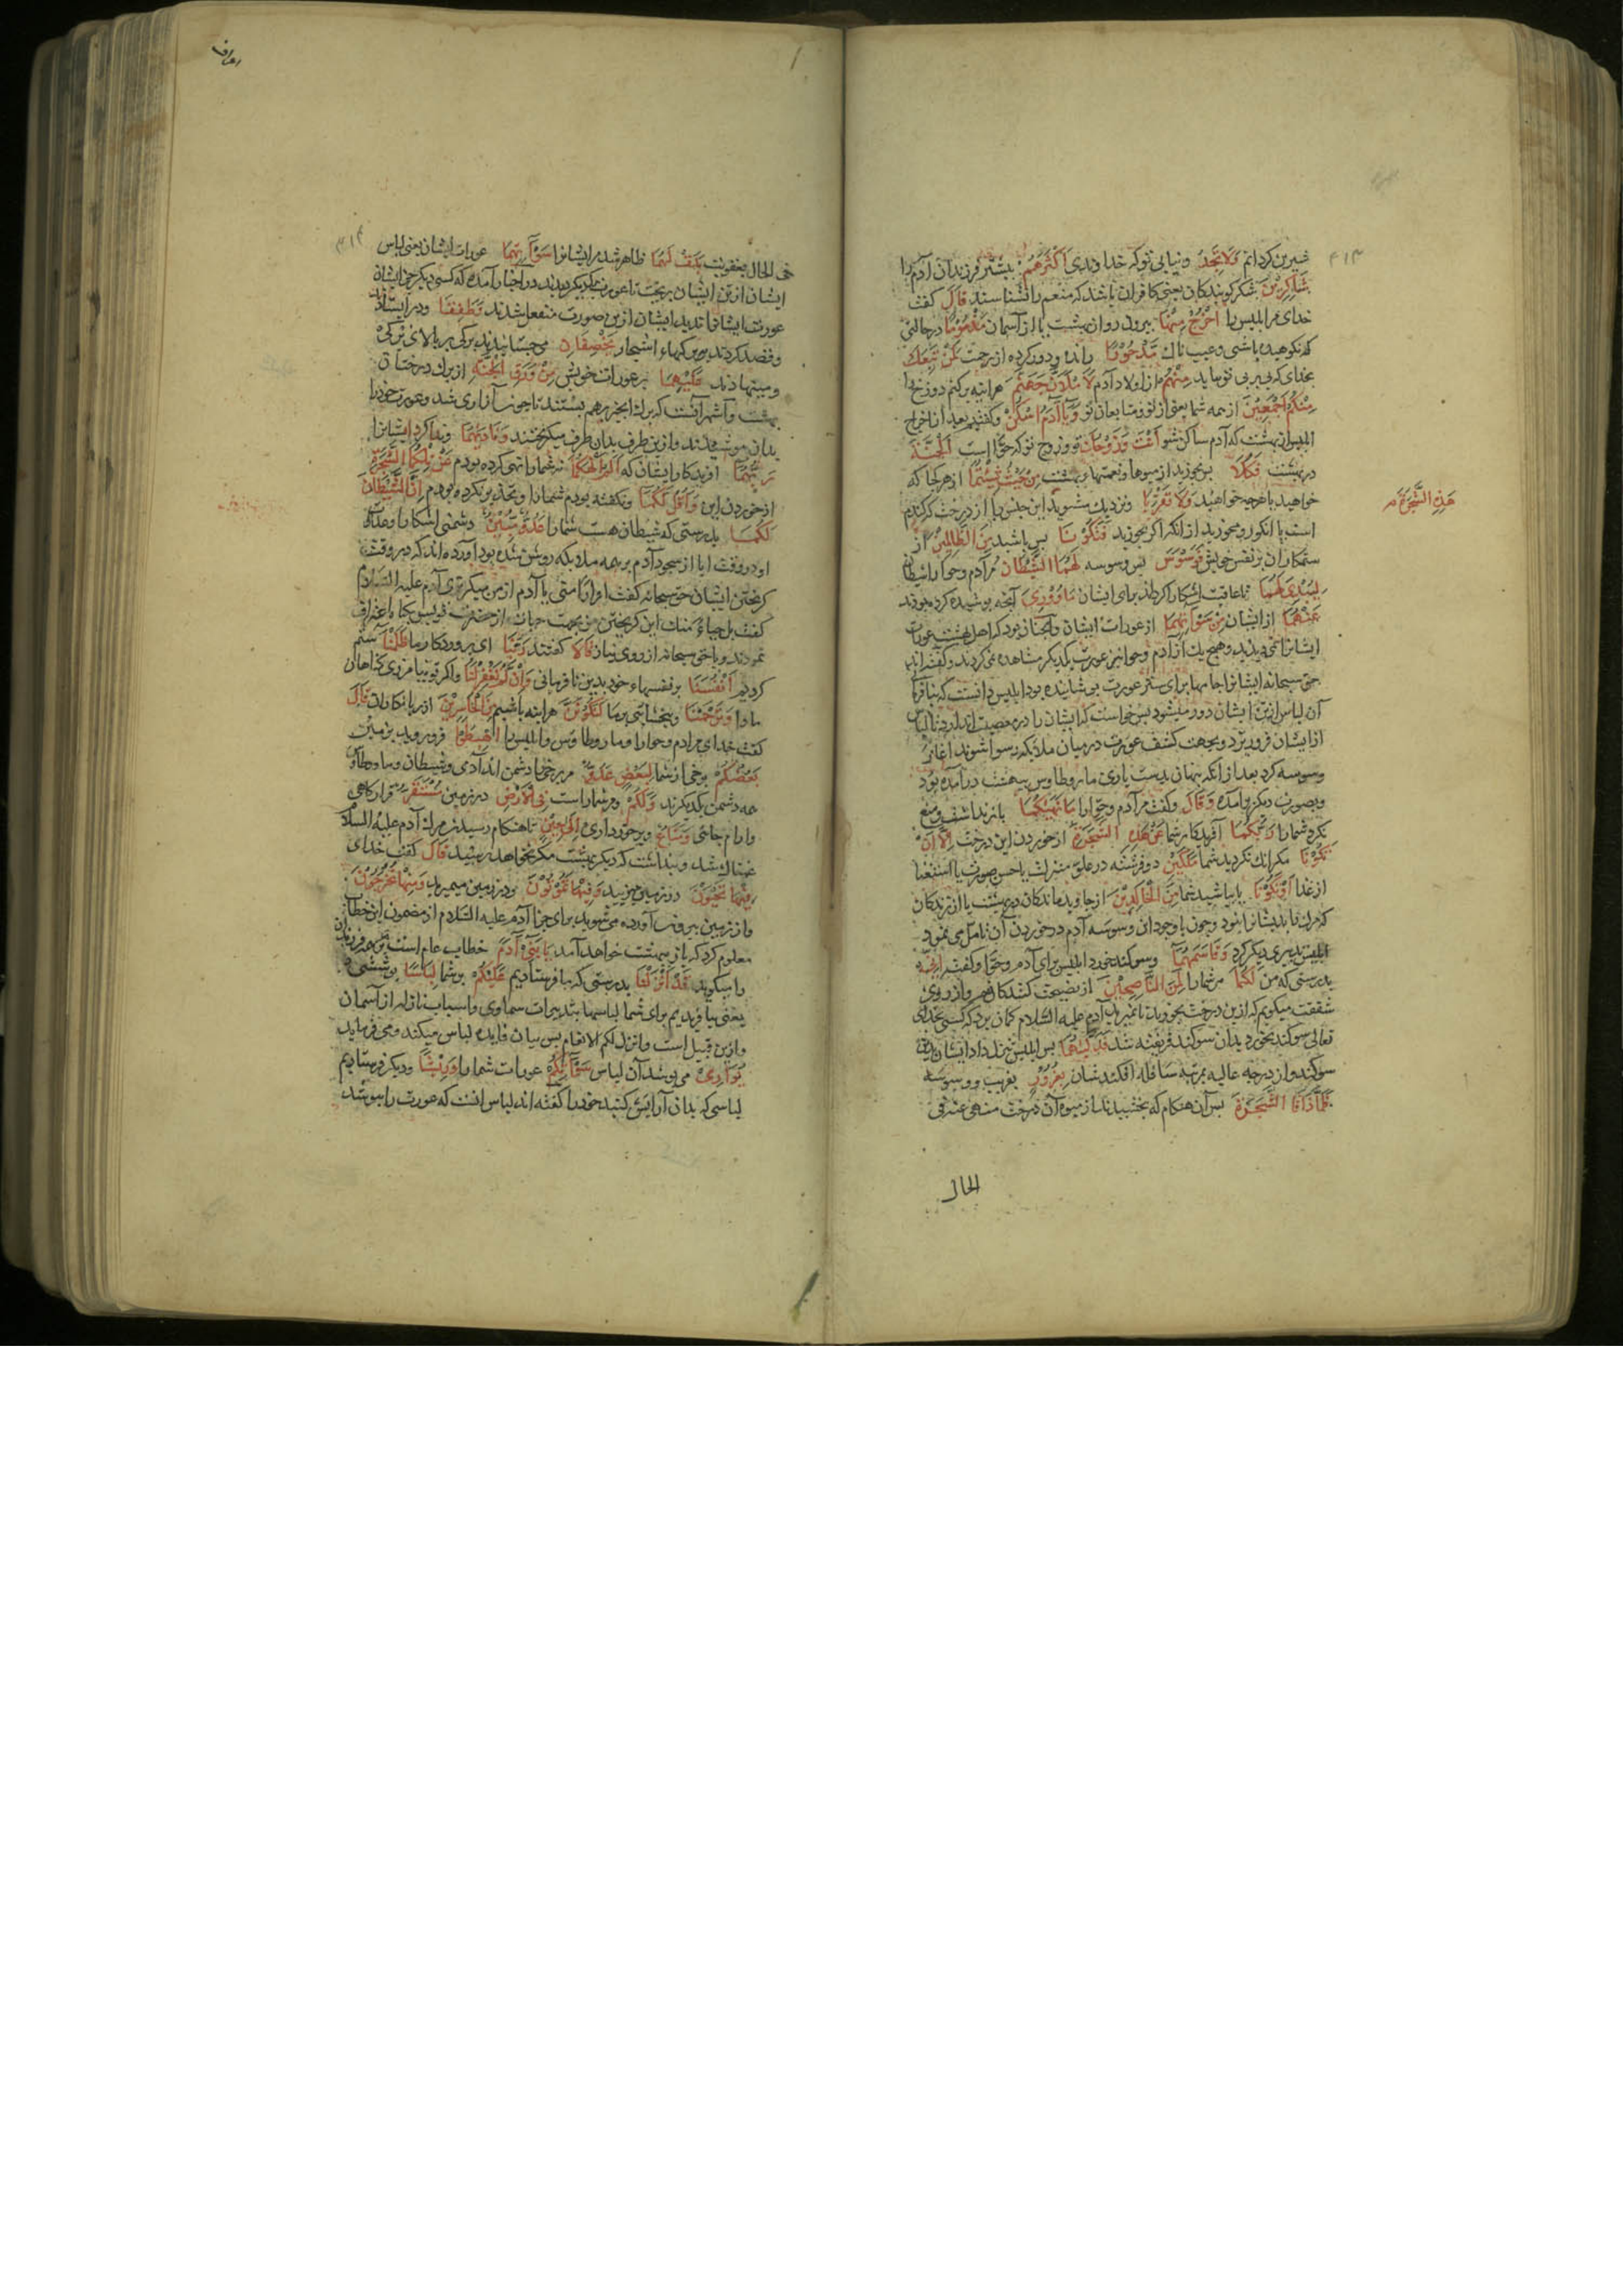 ۴۱۳
شیرین کردانم وَلَا تَجِدُ و نیابی تو که خداوندی اَکْثَرَهُمْ بیشتر فرزندان آدم را
شَاکِرِیْنَ شکر کویندکان یعنی کافران باشند که منعم را نشناسند قَالَ کفت
خدای مر ابلیس را اُخْرُجْ مِنْهَا بیرون رو از بهشت یا از آسمان مَذْءُوْمًا در حالتی
که نکوهیده باشی و عیب ناک مَدْحُوْرًا رانده و دور کرده از رحمت لَمَنْ تَبِعَکَ
بخدای که پیروی تو نماید مِنْهُمْ از اولاد آدم لَاَمْلَاَنَّ جَهَنَّمَ هراینه پر کنم دوزخ را
مِنْکُمْ اَجْمَعِیْنَ از همه شما یعنی از تو و متابعان تو وَیَا آدَمُ اسْکُنْ و کفتیم بعد از اخراج
ابلیس از بهشت که آدم ساکن شو اَنْتَ وَزَوْجُکَ تو و زوج تو که حوّا است اَلْجَنَّةَ
در بهشت فَکُلَا پس بخورید از میوها و نعمتهاء بهشت مِنْ حَیْثُ شِئْتُمَا از هر کجا که
خواهید یا هرچه خواهید وَلَا تَقْرَبَا و نزدیک مشوید این جنس را از درخت که کندم
هَذِهِ الشَّجَرَةَ
است یا انکور و مخورید از انکه اکر بخورید فَتَکُوْنَا پس باشید مِنَ الظَّالِمِیْنَ از
ستمکاران بر نفس خویش فَوَسْوَسَ پس وسوسه لَهُمَا الشَّیْطَانُ مر آدم و حوا را شیطان
لِیُبْدِیَ لَهُمَا تا عاقبت اشکارا کرداند برای ایشان مَا وُوْرِیَ آنچه پوشیده کرده بودند
عَنْهُمَا از ایشان مِنْ سَوْآتِهِمَا از عورات ایشان و آنچنان بود که اهل بهشت عورات
ایشانرا نمی دیدند و هیچ یک از آدم و حوا نیز عورت یکدیکر مشاهده نمی کردند و کفته اند
حق سبحانه ایشانرا جامها برای ستر عورت پوشانیده بود ابلیس دانست که بنافرمانی
آن لباس از تن ایشان دور میشود پس خواست که ایشان را در معصیت اندازد تا لباس
از ایشان فرو ریزد و بجهت کشف عورت در میان ملائکه رسوا شوند آغاز
وسوسه کرد بعد از انکه پنهان بدست یاری مار و طاوس ببهشت درآمده بود
و بصورت دیکر برآمده وَقَالَ و کفت مر آدم و حوّا را مَا نَهَیٰکُمَا باز نداشت و منع
نکرد شما را رَبُّکُمَا آفریدکار شما عَنْ هٰذِهِ الشَّجَرَةِ از خوردن این درخت اِلَّا اَنْ
تَکُوْنَا مکر انک نکردید شما مَلَکَیْنِ دو فرشته در علوّ منزلت یا حسن صورت یا استغنا
از غذا اَوْ تَکُوْنَا یا باشید شما مِنَ الْخَالِدِیْنَ از جاوید ماندکان در بهشت یا از زندکان
که مرک نباشد ایشانرا بنود و چون با وجود این وسوسه آدم در خوردن آن تامل می نمود
ابلیس تدبیری دیکر کرد وَقَاسَمَهُمَا و سوکند خورد ابلیس برای آدم و حوّا و کفت اِنِّیْ
بدرستی که من لَکُمَا مر شما را لَمِنَ النَّاصِحِیْنَ از نصیحت کنندکانم و از روی
شفقت میکویم که ازین درخت بخورید تا نمیرید آدم علیه السّلام کمان برد که کسی بخدای
تعالی سوکند بخورد بدان سوکند فریفته شد فَدَلّٰیهُمَا پس ابلیس تنزل داد ایشان را بدین
سوکند و از درجه عالیه بمرتبه سافله افکند شان بِغُرُوْرٍ بفریب و وسوسه
فَلَمَّا ذَاقَا الشَّجَرَةَ پس آن هنکام که بچشیدند از میوه آن درخت منهی عنه فی
الحال
اعراف
۴۱۴
فی الحال بعقوبت بَدَتْ لَهُمَا ظاهر شد مر ایشانرا سَوْآتُهُمَا عورات ایشان یعنی لباس
ایشان از تن ایشان بریخت تا عورت یکدیکر دیدند در اخبار آمده که کسی دیکر جز ایشان
عورت ایشانرا ندید ایشان ازین صورت منفعل شدند وَطَفِقَا و در ایستادند
و قصد کردند ببرکهاء اشجار یَخْصِفَانِ می چسپانیدند برکی بر بالای برکی
و مینهادند عَلَیْهِمَا بر عورات خویش مِنْ وَرَقِ الْجَنَّةِ از برک درختان
بهشت و اشهر آنست که برک انجیر برهم بستند تا چون ازاری شد و عورت خود را
بدان پوشیدند و ازین طرف بدان طرف میکریختند وَنَادَیٰهُمَا و ندا کرد ایشانرا
رَبُّهُمَا آفریدکار ایشان که اَلَمْ اَنْهَکُمَا نه شما را نهی کرده بودم عَنْ تِلْکُمَا الشَّجَرَةِ
از خوردن این وَاَقُلْ لَکُمَا و نکفته بودم شما را و تحذیر نکرده بودم اِنَّ الشَّیْطَانَ
لَکُمَا بدرستی که شیطان هست شما را عَدُوٌّ مُبِیْنٌ دشمنی اشکارا و عداوت
او در وقت ابا از سجود آدم بر همه ملائکه روشن شده بود آورده اند که در وقت
کریختن ایشان حق سبحانه کفت افرارًا منی یا آدم از من میکریزی آدم علیه السّلام
کفت بل حیاءً منک این کریختن من بجهت حیاست از حضرت تو پس بکناه اعتراف
نمودند و با حق سبحانه از روی نیاز قَالَا کفتند رَبَّنَا ای پروردکار ما ظَلَمْنَا ستم
کردیم اَنْفُسَنَا بر نفسهاء خود بدین نافرمانی وَاِنْ لَمْ تَغْفِرْ لَنَا و اکر تو نیامرزی کناهان
ما را وَتَرْحَمْنَا و نبخشایی بر ما لَنَکُوْنَنَّ هراینه باشیم مِنَ الْخَاسِرِیْنَ از زیانکاران قَالَ
کفت خدای مر ادم و حوا را و مار و طاوس و ابلیس را اهْبِطُوْا فرو روید بزمین
بَعْضُکُمْ برخی از شما لِبَعْضٍ عَدُوٌّ مر برخی را دشمن اند آدمی و شیطان و مار و طاوس
همه دشمن یکدیکرند وَلَکُمْ و مر شما راست فِی الْاَرْضِ در زمین مُسْتَقَرٌّ قرارکاهی
و ارام جائی وَمَتَاعٌ و برخورداری اِلٰی حِیْنٍ تا هنکام رسیدن مرک آدم علیه السلام
غمناک شد و پنداشت که دیکر بهشت مکر نخواهد رسید قَالَ کفت خدای
فِیْهَا تَحْیَوْنَ در زمین میزیید وَفِیْهَا تَمُوْتُوْنَ و در زمین میمیرید وَمِنْهَا تُخْرَجُوْنَ
و از زمین بیرون آورده می شوید برای جزا آدم علیه السّلام از مضمون این خطاب
معلوم کرد که باز ببهشت خواهد آمد یَا بَنِیْ آدَمَ خطاب عام است بهمه فرزندان
را میکوید قَدْ اَنْزَلْنَا بدرستی که ما فرستادیم عَلَیْکُمْ بر شما لِبَاسًا پوششی
یعنی بیافریدیم برای شما لباسها بتدبیرات سماوی و اسباب نازله از آسمان
و ازین قبیل است و انزل لکم الانعام پس بیان فایده لباس میکند و می فرماید
یُوَارِیْ می پوشد آن لباس سَوْآتِکُمْ عورات شما را وَرِیْشًا و دیکر فرستادیم
لباسی که بدان آرایش کنید خود را کفته اند لباس انست که عورت را بپوشد